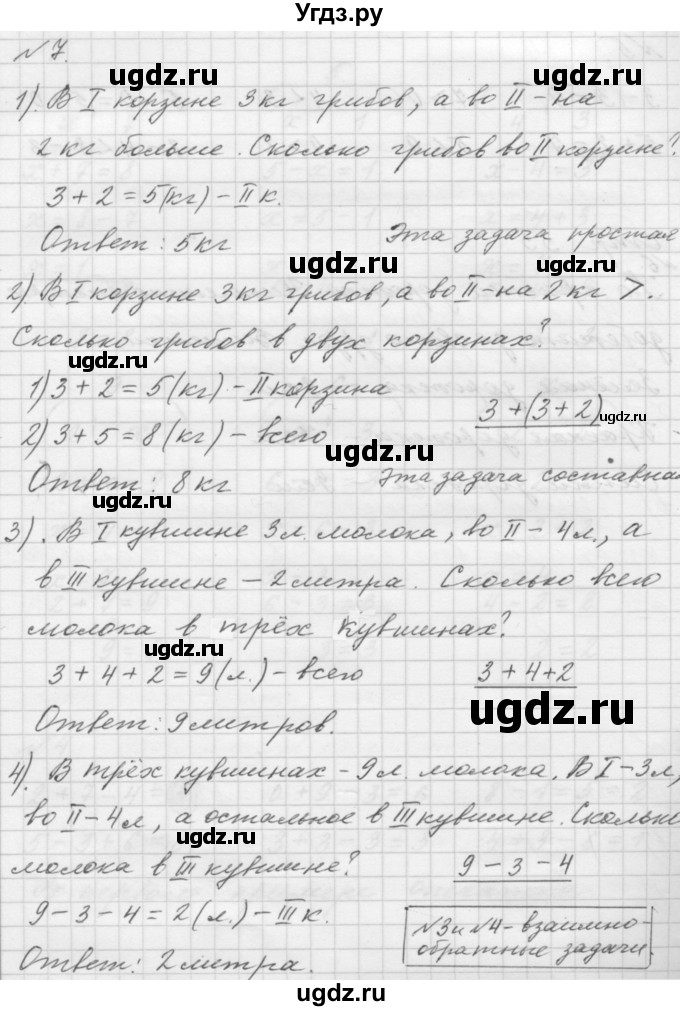 Угдз.ру
№ 7.
ugdz.ru ugdz.ru
1). В I корзине 3 кг грибов, а во II - на
2 кг больше. Сколько грибов во II корзине?
3 + 2 = 5(кг) - II к.
ugdz.ru
Ответ: 5 кг Эта задача простая
ugdz.ru
2) В I корзине 3 кг грибов, а во II - на 2 кг >.
Сколько грибов в двух корзинах?
ugdz.ru
1) 3 + 2 = 5 (кг) - II корзина
3 + (3 + 2) ugdz.ru
2) 3 + 5 = 8 (кг) - всего
Ответ: 8 кг Эта задача составная
ugdz.ru
3). В I кувшине 3 л. молока, во II - 4 л., а
в III кувшине - 2 литра. Сколько всего
молока в трёх кувшинах?
ugdz.ru
3 + 4 + 2 = 9 (л.) - всего 3 + 4 + 2
ugdz.ru
Ответ: 9 литров.
4). В трёх кувшинах - 9 л. молока. В I - 3 л,
во II - 4 л, а остальное в III кувшине. Сколько
ugdz.ru
молока в III кувшине? 9 - 3 - 4
9 - 3 - 4 = 2 (л.) - III к.
№3 и №4 - взаимно-
обратные задачи.
Ответ: 2 литра.
ugdz.ru
ugdz.ru